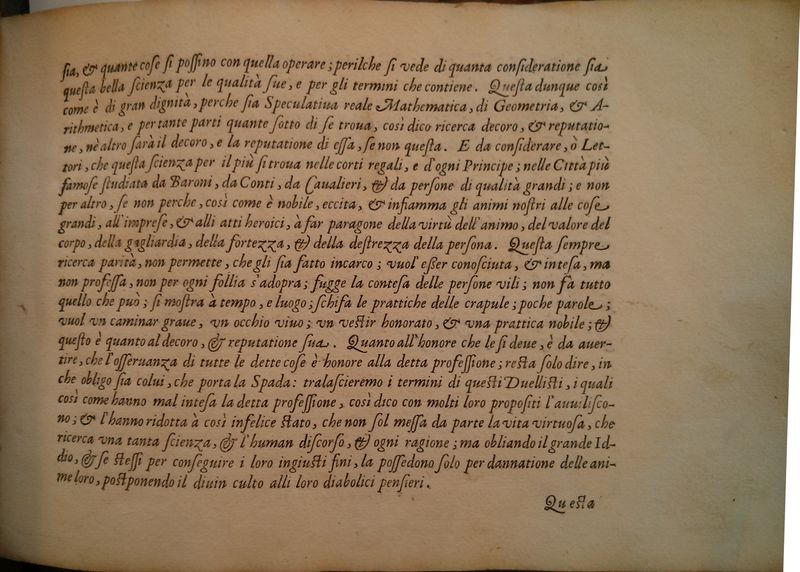 ſia, & quante coſe ſi poſſino con quella operare; perilche ſi vede di quanta conſideratione ſia
queſta bella ſcienza per le qualità ſue, e per gli termini che contiene. Queſta dunque così
come è di gran dignità, perche ſia Speculatiua reale Mathematica, di Geometria, & A-
rithmetica, e per tante parti quante ſotto di ſe troua, così dico ricerca decoro, & reputatio-
ne, nè altro ſarà il decoro, e la reputatione di eſſa, ſe non queſta. E da conſiderare, ò Let-
tori, che queſta ſcienza per il più ſi troua nelle corti regali, e d'ogni Principe; nelle Città più
famoſe ſtudiata da Baroni, da Conti, da Caualieri, & da perſone di qualità grandi; e non
per altro, ſe non perche, così come è nobile, eccita, & infiamma gli animi noſtri alle coſe
grandi, all'impreſe, & alli atti heroici, à far paragone della virtù dell'animo, del valore del
corpo, della gagliardia, della fortezza, & della deſtrezza della perſona. Queſta ſempre
ricerca parità, non permette, che gli ſia fatto incarco; vuol' eſſer conoſciuta, & inteſa, ma
non profeſſa, non per ogni follia s'adopra; fugge la conteſa delle perſone vili; non fà tutto
quello che può; ſi moſtra à tempo, e luogo; ſchifa le prattiche delle crapule; poche parole;
vuol vn caminar graue, vn occhio viuo; vn veſtir honorato, & vna prattica nobile; &
queſto è quanto al decoro, & reputatione ſua. Quanto all'honore che le ſi deue, è da auer-
tire, che l'oſſeruanza di tutte le dette coſe è honore alla detta profeſſione; reſta ſolo dire, in
che obligo ſia colui, che porta la Spada: tralaſcieremo i termini di queſti Duelliſti, i quali
così come hanno mal inteſa la detta profeſſione, così dico con molti loro propoſiti l'auuiliſco-
no; & l'hanno ridotta à così infelice ſtato, che non ſol meſſa da parte la vita virtuoſa, che
ricerca vna tanta ſcienza, & l'human diſcorſo, & ogni ragione; ma obliando il grande Id-
dio, & ſe ſteſſi per conſeguire i loro ingiuſti fini, la poſſedono ſolo per dannatione delle ani-
me loro, poſtponendo il diuin culto alli loro diabolici penſieri.
Queſta